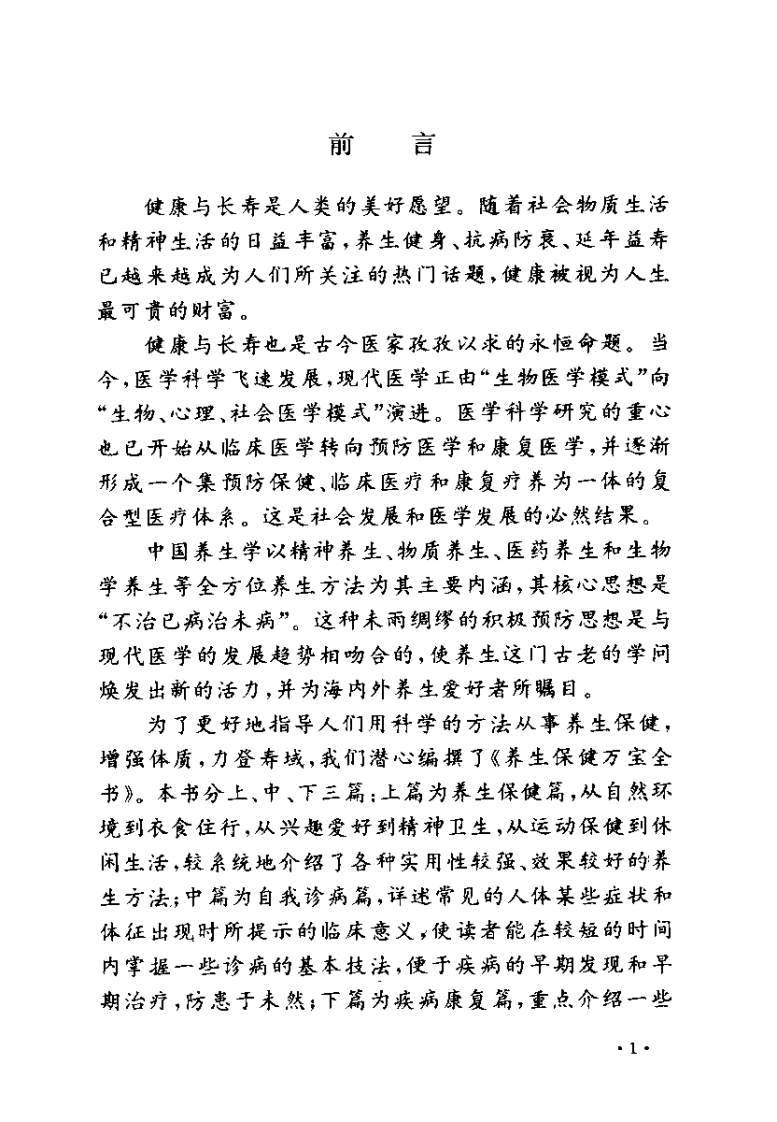 前　言
健康与长寿是人类的美好愿望。随着社会物质生活
和精神生活的日益丰富，养生健身、抗病防衰、延年益寿
已越来越成为人们所关注的热门话题，健康被视为人生
最可贵的财富。
健康与长寿也是古今医家孜孜以求的永恒命题。当
今，医学科学飞速发展，现代医学正由“生物医学模式”向
“生物、心理、社会医学模式”演进。医学科学研究的重心
也已开始从临床医学转向预防医学和康复医学，并逐渐
形成一个集预防保健、临床医疗和康复疗养为一体的复
合型医疗体系。这是社会发展和医学发展的必然结果。
中国养生学以精神养生、物质养生、医药养生和生物
学养生等全方位养生方法为其主要内涵，其核心思想是
“不治已病治未病”。这种未雨绸缪的积极预防思想是与
现代医学的发展趋势相吻合的，使养生这门古老的学问
焕发出新的活力，并为海内外养生爱好者所瞩目。
为了更好地指导人们用科学的方法从事养生保健，
增强体质，力登寿域，我们潜心编撰了《养生保健万宝全
书》。本书分上、中、下三篇：上篇为养生保健篇，从自然环
境到衣食住行，从兴趣爱好到精神卫生，从运动保健到休
闲生活，较系统地介绍了各种实用性较强、效果较好的养
生方法；中篇为自我诊病篇，详述常见的人体某些症状和
体征出现时所提示的临床意义，使读者能在较短的时间
内掌握一些诊病的基本技法，便于疾病的早期发现和早
期治疗，防患于未然；下篇为疾病康复篇，重点介绍一些
·1·